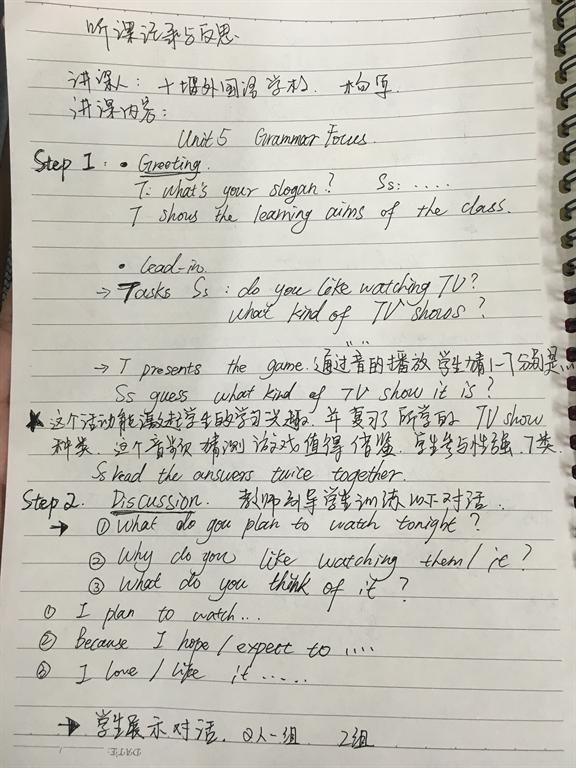 听课记录与反思.
讲课人: 十堰外国语学校.
讲课内容:
Unit 5 Grammar Focus.
Step 1: • Greeting.
T: What's your slogan? Ss: ....
T shows the learning aims of the class.
• lead-in.
→ Tasks Ss: do you like watching TV?
what kind of TV shows?
→ T presents the game. 通过音的播放 学生猜1-7分别是...
Ss guess what kind of TV show it is?
★这个活动能激起学生的学习兴趣. 并复习了所学的 TV show
种类. 这个音频猜测游戏值得借鉴. 学生参与性强. 7类.
Ss read the answers twice together.
Step 2. Discussion. 教师引导学生训练以下对话.
→ ① What do you plan to watch tonight?
② Why do you like watching them/it?
③ What do you think of it?
① I plan to watch...
② Because I hope/expect to ....
③ I love/like it .....
→ 学生展示对话. 2人一组 2组
DATE